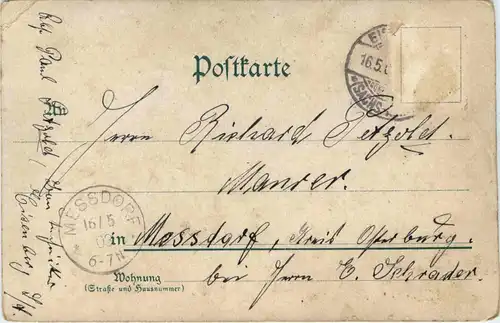 Postkarte
16.5.
Herrn Richard Petzold.
Maurer.
in Messdorf, Kreis Osterburg.
bei Herrn E. Schrader.
Wohnung
(Straße und Hausnummer)
MESSDORF
16/5
6-7N.
Paul Petzold,
Eisenberg S/A